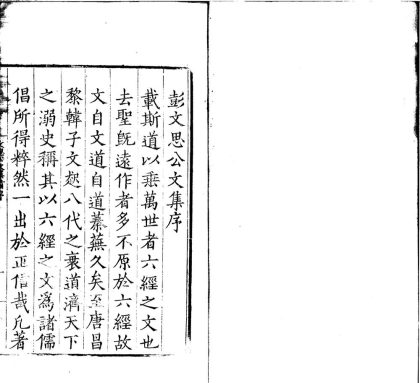 彭文思公文集序
載斯道以垂萬世者六經之文也
去聖旣遠作者多不原於六經故
文自文道自道蓁蕪久矣至唐昌
黎韓子文起八代之衰道濟天下
之溺史稱其以六經之文爲諸儒
倡所得粹然一出於正信哉凡著